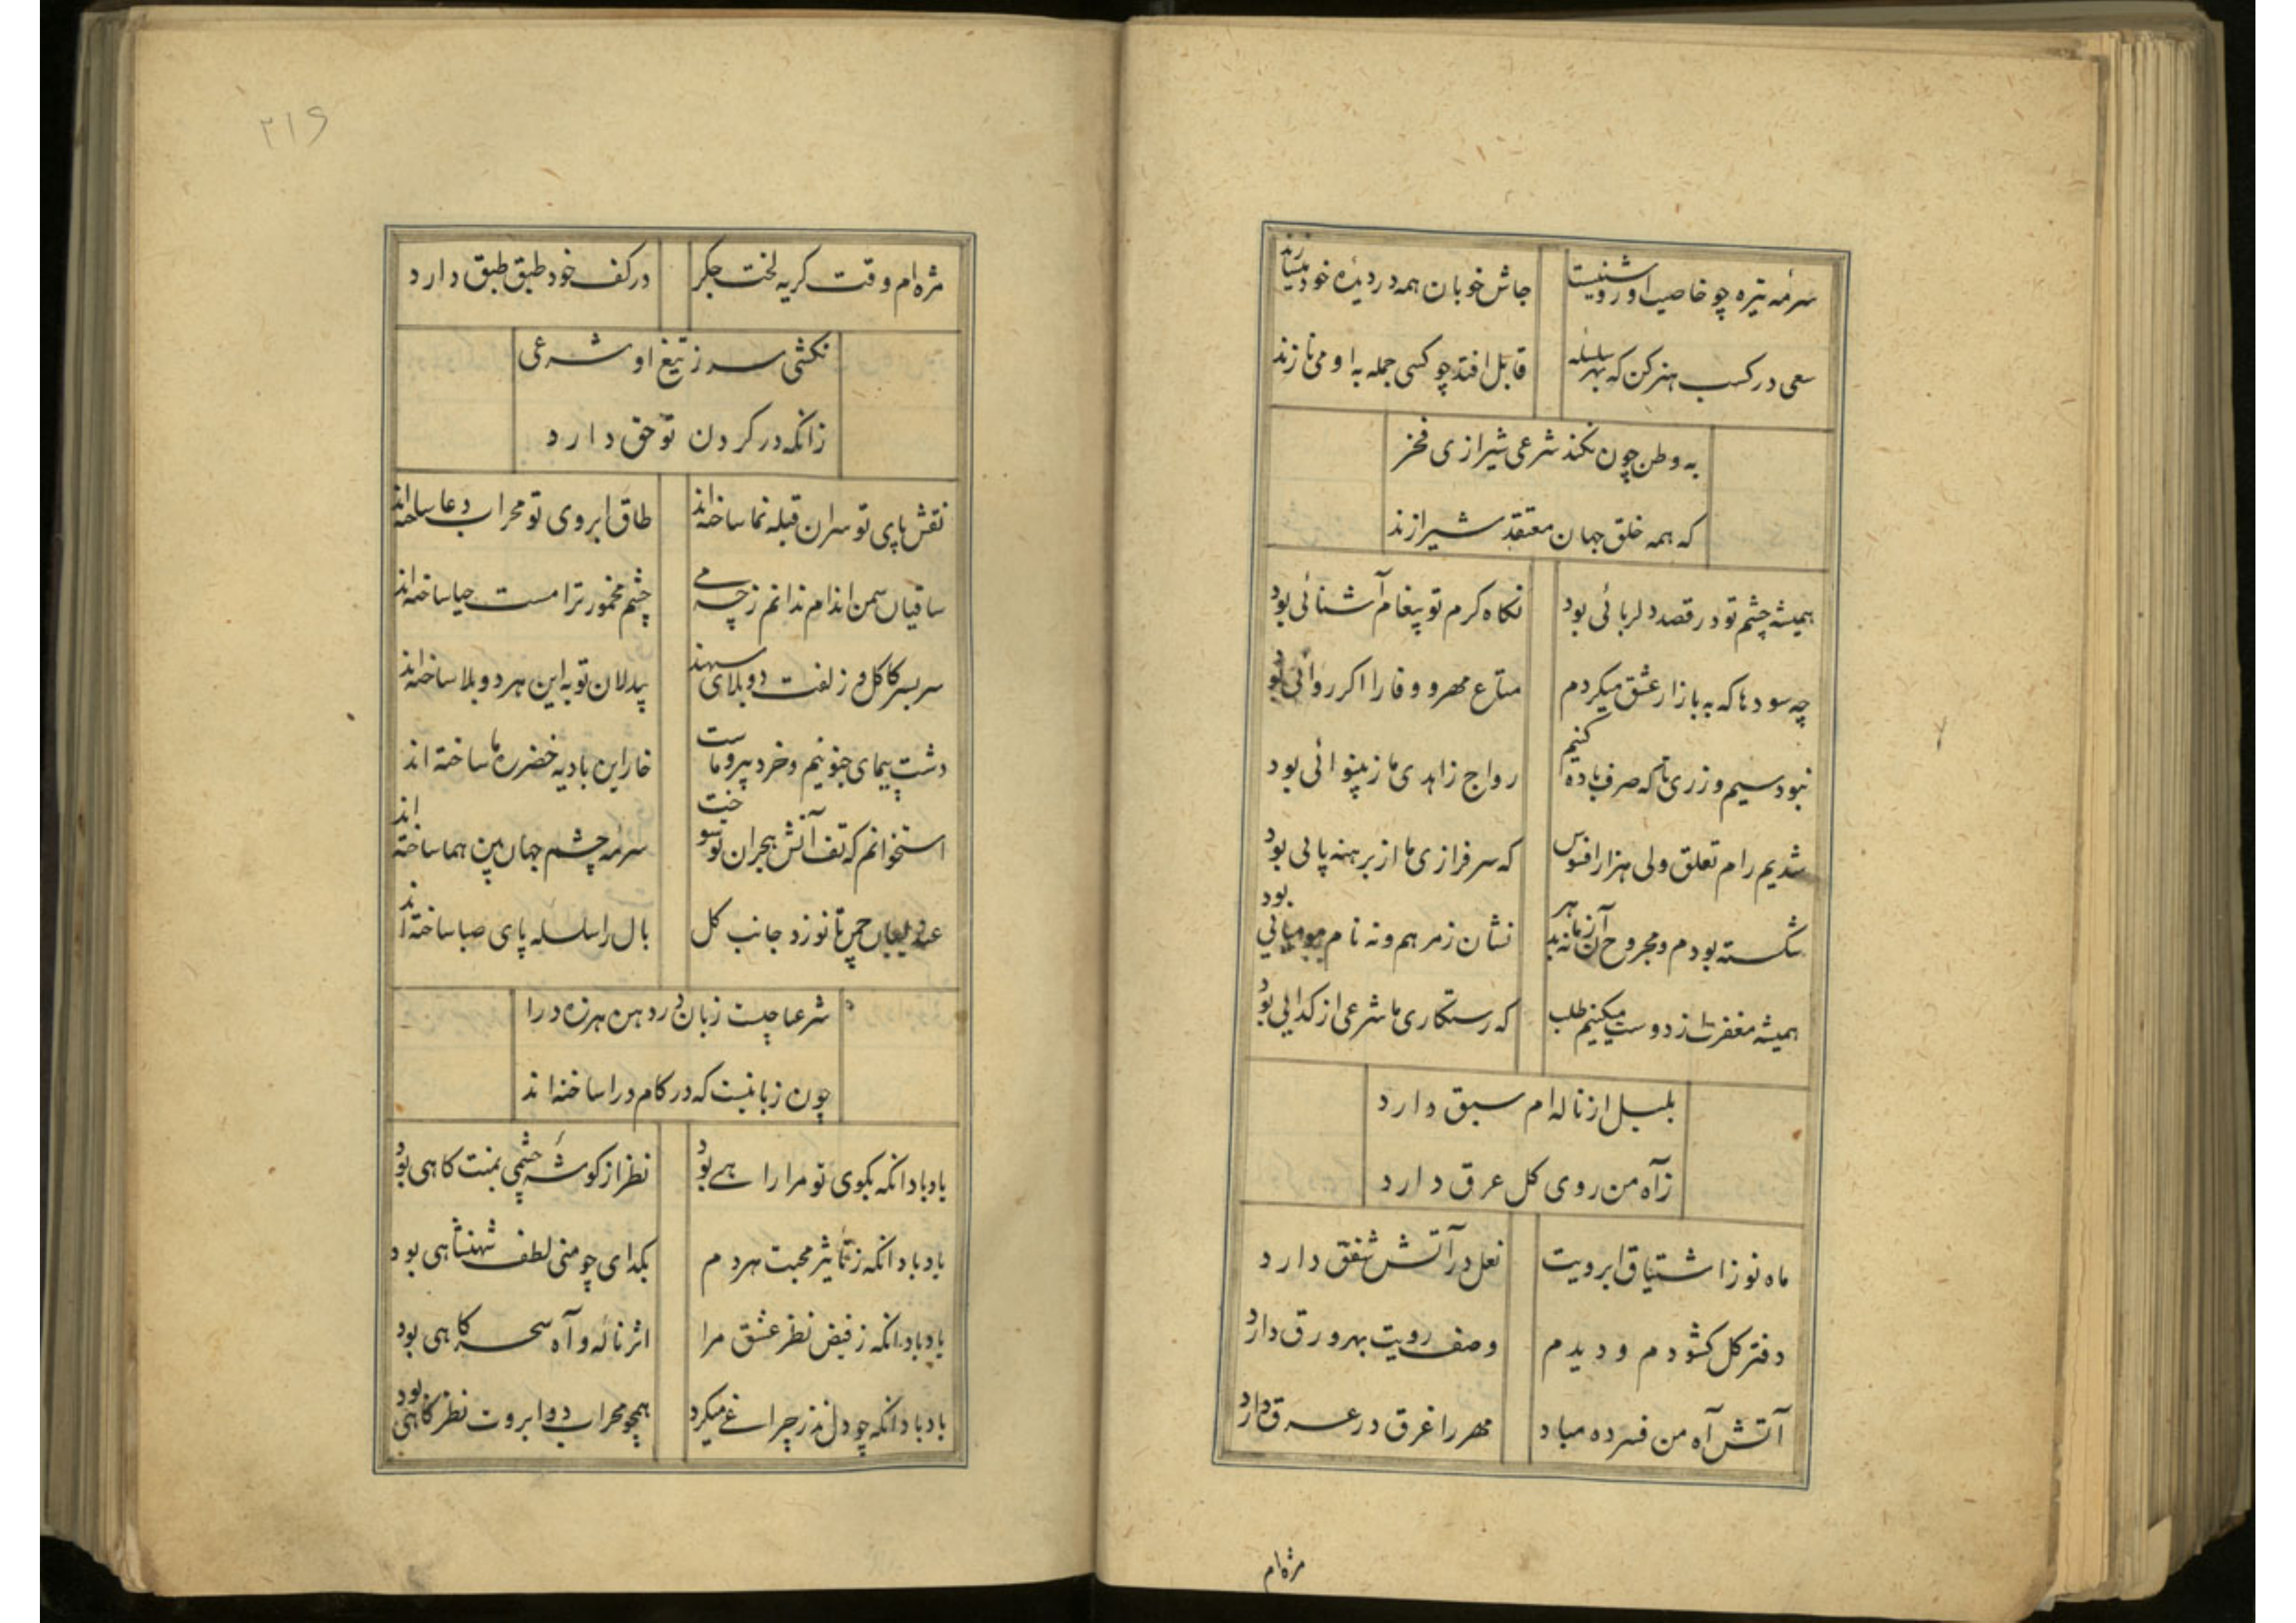 سرمه تیره چو خاصیت او روشنیست
جاش خوبان همه در دیده خود میسازند
سعی در کسب هنر کن که بهر سلسله
قابل افتد چو کسی جمله به او می نازند
به وطن چون نکند شرعی شیرازی فخر
که همه خلق جهان معتقد شیرازند
همیشه چشم تو در قصد دلربائی بود
نکاه کرم تو پیغام آشنائی بود
چه سودها که به بازار عشق میکردم
متاع مهر و وفا را اکر روائی بود
نبود سیم و زری تا که صرف باده کنیم
رواج زاهدی ما ز بینوائی بود
شدیم رام تعلق ولی هزار افسوس
که سرفرازی ما از برهنه پائی بود
شکسته بودم و مجروح آن زمانه بد هر
نشان ز مرهم و نه نام مومیائی بود
همیشه مغفرت از دوست میکنیم طلب
که رستکاری ما شرعی از کدایی بود
بلبل از ناله ام سبق دارد
زآه من روی کل عرق دارد
ماه نو ز اشتیاق ابرویت
نعل در آتش شفق دارد
دفتر کل کشودم و دیدم
وصف رویت بهر ورق دارد
آتش آه من فسرده مباد
مهر را غرق در عرق دارد
مژه ام
۲۱۶
مژه ام وقت کریه لخت جکر
در کف خود طبق طبق دارد
نکشی سر ز تیغ او شرعی
زانکه در کردن تو حق دارد
نقش پای تو سران قبله نما ساخته اند
طاق ابروی تو محراب دعا ساخته اند
ساقیان سمن اندام ندانم ز چه می
چشم مخمور ترا مست حیا ساخته اند
سر بسر کاکل و زلفت دو بلای سهند
بیدلان تو به این هر دو بلا ساخته اند
دشت پیمای جنونیم و خرد پیرو ماست
خار این بادیه خضر ره ما ساخته اند
استخوانم که تف آتش هجران تو سوخت
سرمه چشم جهان بین هما ساخته اند
عندلیبان چمن تا نوزد جانب کل
بال را سلسله پای صبا ساخته اند
شرعیا چیست زبان در دهن هرزه درا
چون زبانیست که در کام درا ساخته اند
یاد باد انکه بکوی تو مرا راهے بود
نظر از کوشه چشمی بمنت کاهی بود
یاد باد انکه ز تأثیر محبت هر دم
بکدای چو منی لطف شهنشاهی بود
یاد باد انکه ز فیض نظر عشق مرا
اثر ناله و آه سحر کاهی بود
یاد باد انکه چو دل نذر چراغے میکرد
همچو محراب دو ابروت نظر کاهی بود